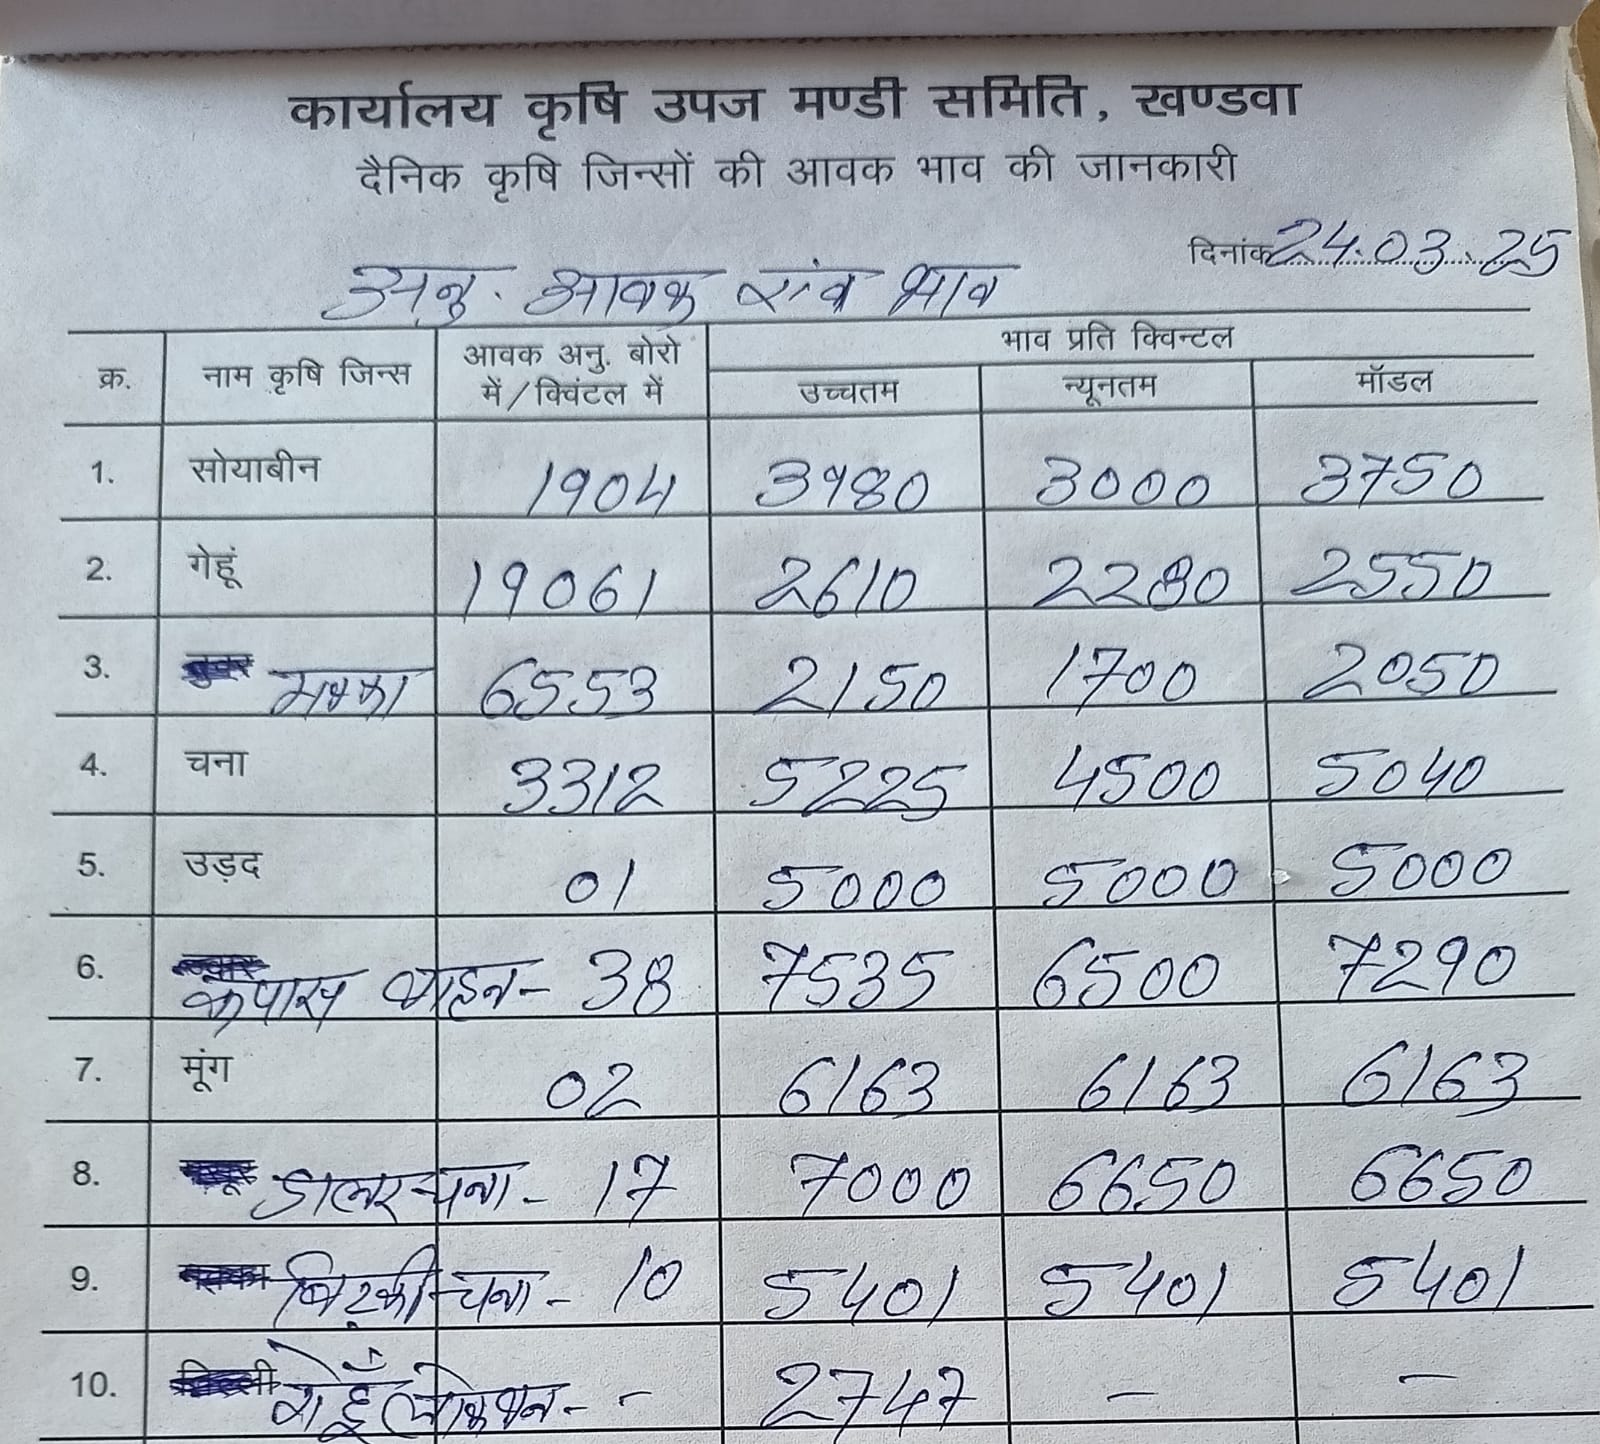 कार्यालय कृषि उपज मण्डी समिति, खण्डवा
दैनिक कृषि जिन्सों की आवक भाव की जानकारी
दिनांक 24.03.25
अनु. आवक एवं भाव
क्र. नाम कृषि जिन्स आवक अनु. बोरो में/क्विंटल में भाव प्रति क्विन्टल
उच्चतम न्यूनतम मॉडल
1. सोयाबीन 1904 3980 3000 3750
2. गेहूं 19061 2610 2280 2550
3. मक्का 6553 2150 1700 2050
4. चना 3312 5225 4500 5040
5. उड़द 01 5000 5000 5000
6. कपास वाहन - 38 7535 6500 7290
7. मूंग 02 6163 6163 6163
8. डालर चना - 17 7000 6650 6650
9. बिटकी चना - 10 5401 5401 5401
10. गेहूँ लोकवन - - 2747 - -